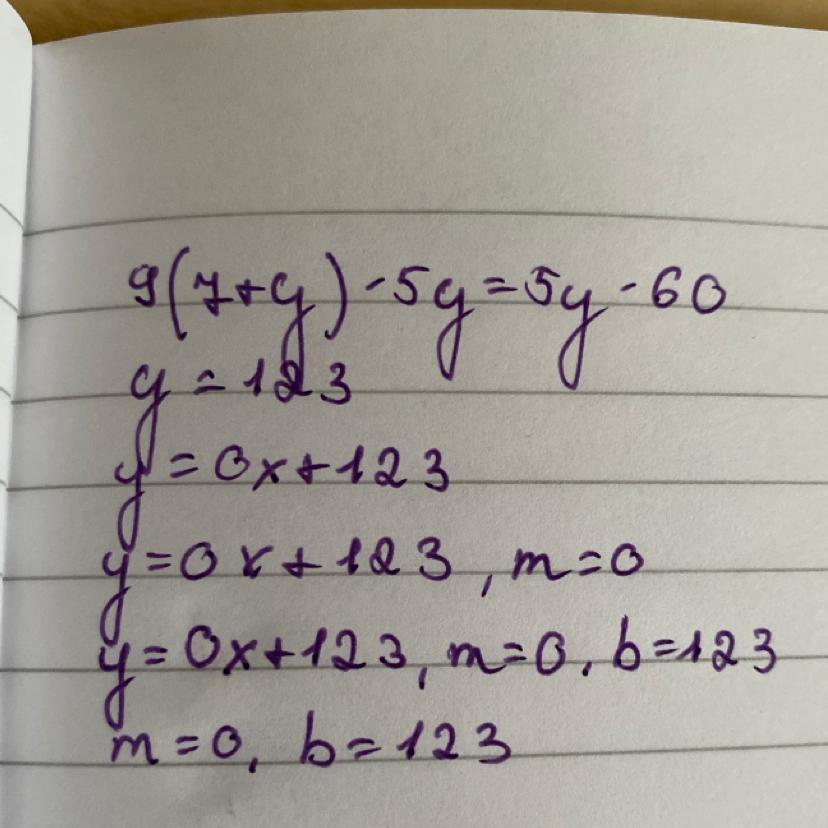 9(7+y)-5y=5y-60
y=123
y=0x+123
y=0x+123, m=0
y=0x+123, m=0, b=123
m=0, b=123